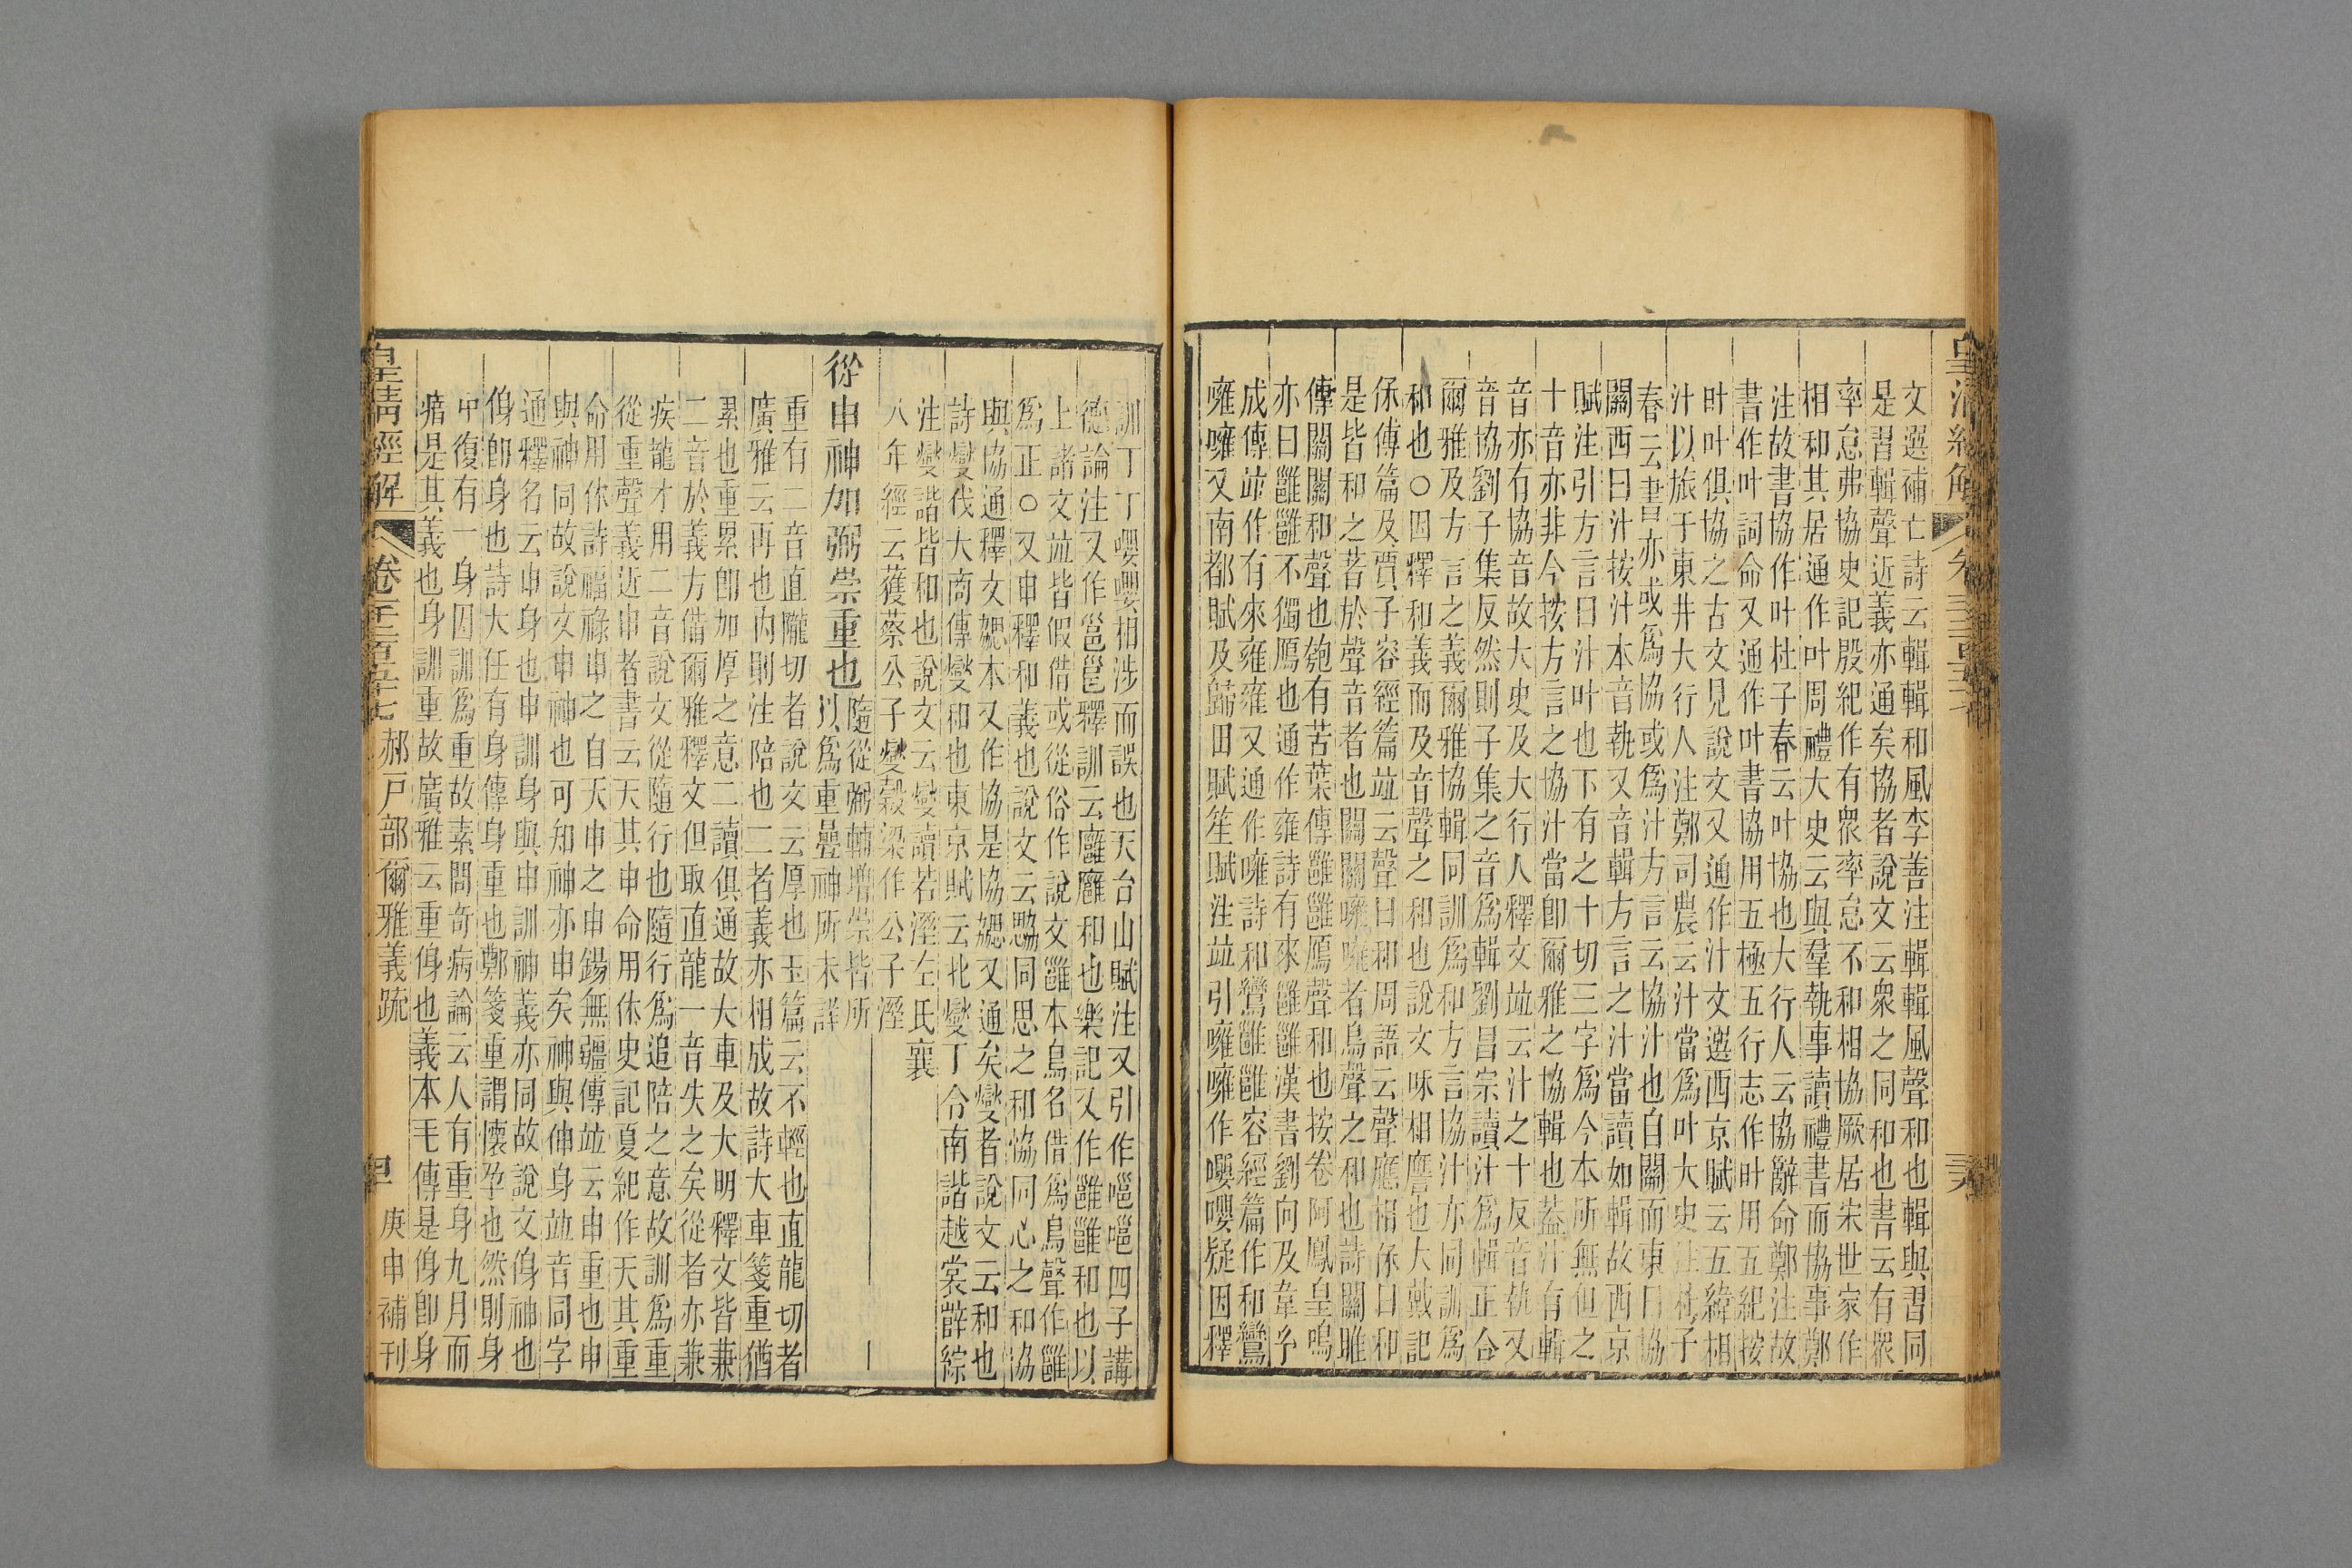 文選補亡詩云輯輯和風李善注輯輯風聲和也輯與習同
是習輯聲近義亦通矣協者說文云衆之同和也書云有衆
率怠弗協史記殷紀作有衆率怠不和相協厥居宋世家作
相和其居通作叶周禮大史云與羣執事讀禮書而協事鄭
注故書協作叶杜子春云叶協也大行人云協辭命鄭注故
書作叶詞命又通作叶書協用五極五行志作旪用五紀按
旪叶俱協之古文見說文又通作汁文選西京賦云五緯相
汁以旅于東井大行人注鄭司農云汁當爲叶大史注杜子
春云書亦或爲協或爲汁方言云協汁也自關而東曰協
關西曰汁按汁本音執又音輯方言之汁當讀如輯故西京
賦注引方言曰汁叶也下有之十切三字爲今本所無但之
十音亦非今按方言之協汁當卽爾雅之協輯也葢汁有輯
音亦有協音故大史及大行人釋文竝云汁之十反音執又
音協劉子集反然則子集之音爲輯劉昌宗讀汁爲輯正合
爾雅及方言之義爾雅協輯同訓爲和方言協汁亦同訓爲
和也○因釋和義而及音聲之和也說文咊相譍也大戴記
保傅篇及賈子容經篇竝云聲曰和周語云聲應相保曰和
是皆和之若於聲音者也關關噰噰者鳥聲之和也詩關雎
傳關關和聲也匏有苦葉傳雝雝鴈聲和也按卷阿鳳皇鳴
亦曰雝雝不獨鴈也通作雍詩有來雝雝漢書劉向及韋孚
成傳竝作有來雍雍又通作噰詩和鸞雝雝容經篇作和鸞
噰噰又南都賦及歸田賦笙賦注竝引噰噰作嚶嚶疑因釋
訓丁丁嚶嚶相涉而誤也天台山賦注又引作嗈嗈四子講
德論注又作邕邕釋訓云廱廱和也樂記又作雝雝和也以
上諸文竝皆假借或從俗作說文雝本鳥名借爲鳥聲作雝
爲正○又申釋和義也說文云勰同思之和協同心之和協
與協通釋文勰本又作協是協勰又通矣燮者說文云和也
詩燮伐大商傳燮和也東京賦云北燮丁令南諧越裳薛綜
注燮諧皆和也說文云燮讀若溼左氏襄
八年經云獲蔡公子燮穀梁作公子溼
從申神加弼崇重也隨從弼輔增崇皆所
以爲重疊神所未詳
重有二音直隴切者說文云厚也玉篇云不輕也直龍切者
廣雅云再也內則注陪也二者義亦相成故詩大車箋重猶
累也重累卽加厚之意二讀俱通故大車及大明釋文皆兼
二音於義方備爾雅釋文但取直龍一音失之矣從者亦兼
疾龍才用二音說文從隨行也隨行爲追陪之意故訓爲重
從重聲義近申者書云天其申命用休史記夏紀作天其重
命用休詩福祿申之自天申之申錫無疆傳竝云申重也申
與神同故說文申神也可知神亦申矣神與伸身竝音同字
通釋名云申身也申訓身與申訓神義亦同故說文侽神也
侽卽身也詩大任有身傳身重也鄭箋重謂懷孕也然則身
中復有一身因訓爲重故素問奇病論云人有重身九月而
瘖是其義也身訓重故廣雅云重侽也義本毛傳是侽卽身
皇清經解
卷千二百五十七
郝戶部爾雅義疏
庚申補刊